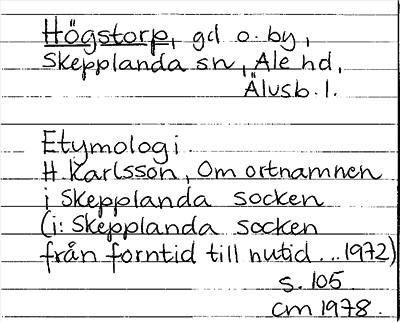 Högstorp, gd o. by,
Skepplanda sn, Ale hd,
Älvsb. l.
Etymologi.
H. Karlsson, Om ortnamnen
i Skepplanda socken
(i: Skepplanda socken
från forntid till nutid...1972)
s. 105.
cm 1978.